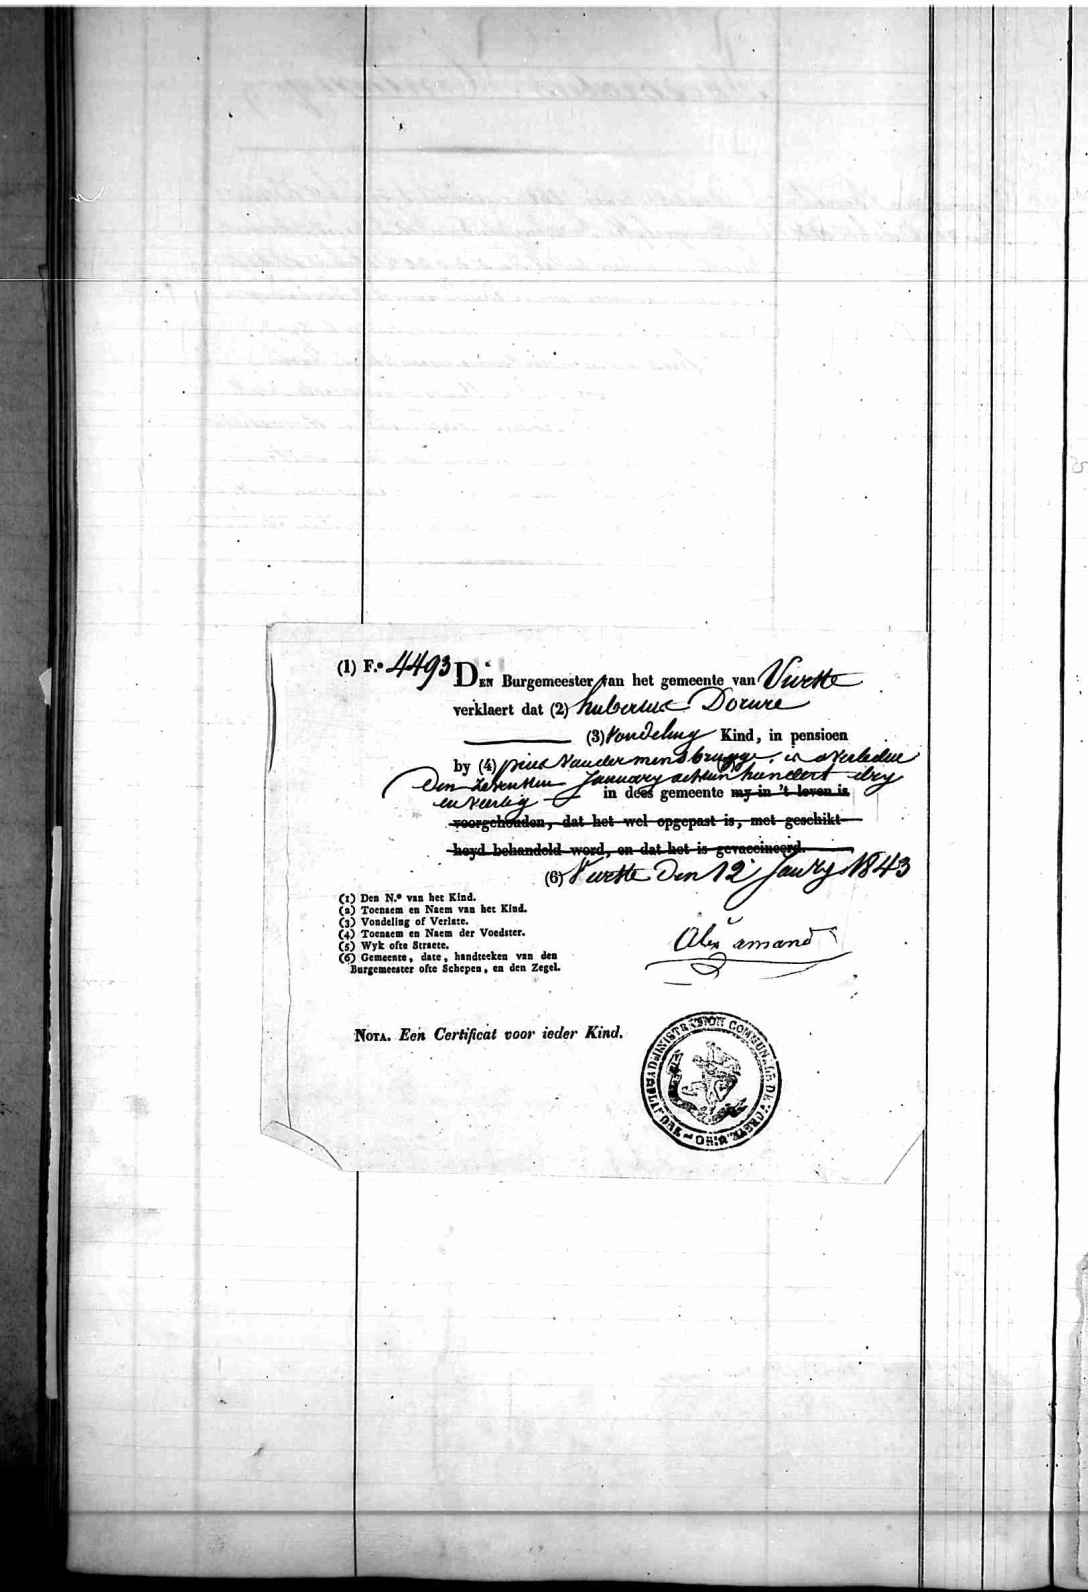 (1) F.º 4493 DEN Burgemeester van het gemeente van Vurste
verklaert dat (2) hubertus Dorure
(3) Vondeling Kind, in pensioen
by (4) pieter Vandermensbrugge, is overleden
den zevensten January achtien hondert dry
en veertig in dees gemeente my in 't leven is
voorgehouden, dat het wel opgepast is, met geschikt-
heyd behandeld word, en dat het is gevaccineerd.
(6) Vurste den 12 Janry 1843
(1) Den N.º van het Kind.
(2) Toenaem en Naem van het Kind.
(3) Vondeling of Verlate.
(4) Toenaem en Naem der Voedster.
(5) Wyk ofte Straete.
(6) Gemeente, date, handteeken van den
Burgemeester ofte Schepen, en den Zegel.
Alex amand
NOTA. Een Certificat voor ieder Kind.
ADMINISTRATION COMMUNALE DE